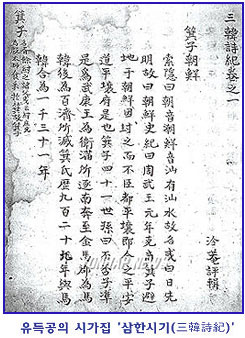 三韓詩紀卷之一
冷菴評輯
箕子朝鮮
索隱曰朝音潮鮮音汕有汕水故名或曰日先
明故曰朝鮮史紀曰周武王元年克商箕子避
地于朝鮮因封之而不臣都平壤即今平安
道平壤府是也箕子四十一世孫曰否子準
是為武康王為衛滿所逐南奔至金馬郡為馬
韓後為百濟所滅箕氏歷九百二十九年與馬
韓合為一千三十一年
箕子
유득공의 시가집 '삼한시기(三韓詩紀)'